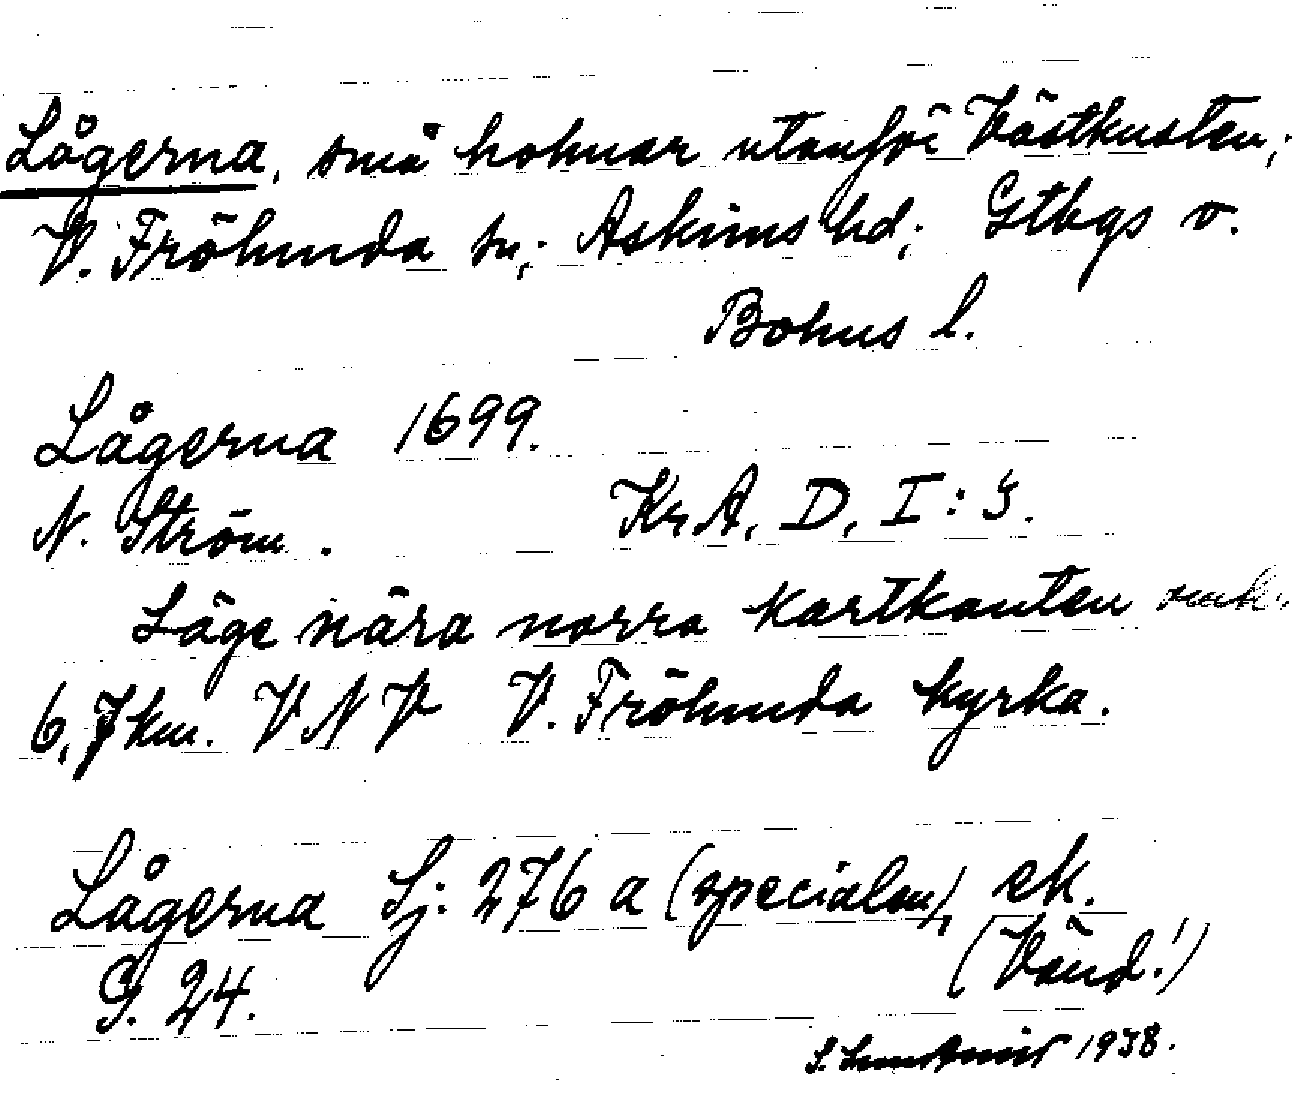 Lågerna, små holmar utanför Västkusten;
V. Frölunda sn; Askims hd; Gtbgs o.
Bohus l.
Lågerna 1699.
N. Ström. Kr A, D, I: 3.
Läge nära norra kartkanten omk.
6,7 km. VNV V. Frölunda kyrka.
Lågerna Sj: 276 a (specialen), ek.
G. 24. (Vänd!)
S. 1938.